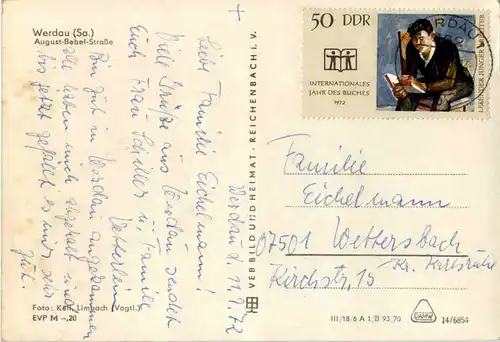 Werdau (Sa.)
August-Bebel-Straße
Werdau d. 11.9.72
Liebe Familie Eichelmann!
Viele Grüße aus Werdau sendet
Euch Frau u. Familie
Bin gut in Werdau angekommen
alle haben mich abgeholt und
bis jetzt gefällt es mir sehr
gut.
Foto: Kell, Limbach (Vogtl.)
EVP M –,20
VEB BILD UND HEIMAT · REICHENBACH I. V.
50 DDR
INTERNATIONALES
JAHR DES BUCHES
1972
LESENDER JUNGER ARBEITER
WERDAU
Familie
Eichelmann
07501 Wettersbach
Kr. Karlsruhe
Kirchstr, 15
III/18/6 A 1/B 93/70
DAMW
14/6854